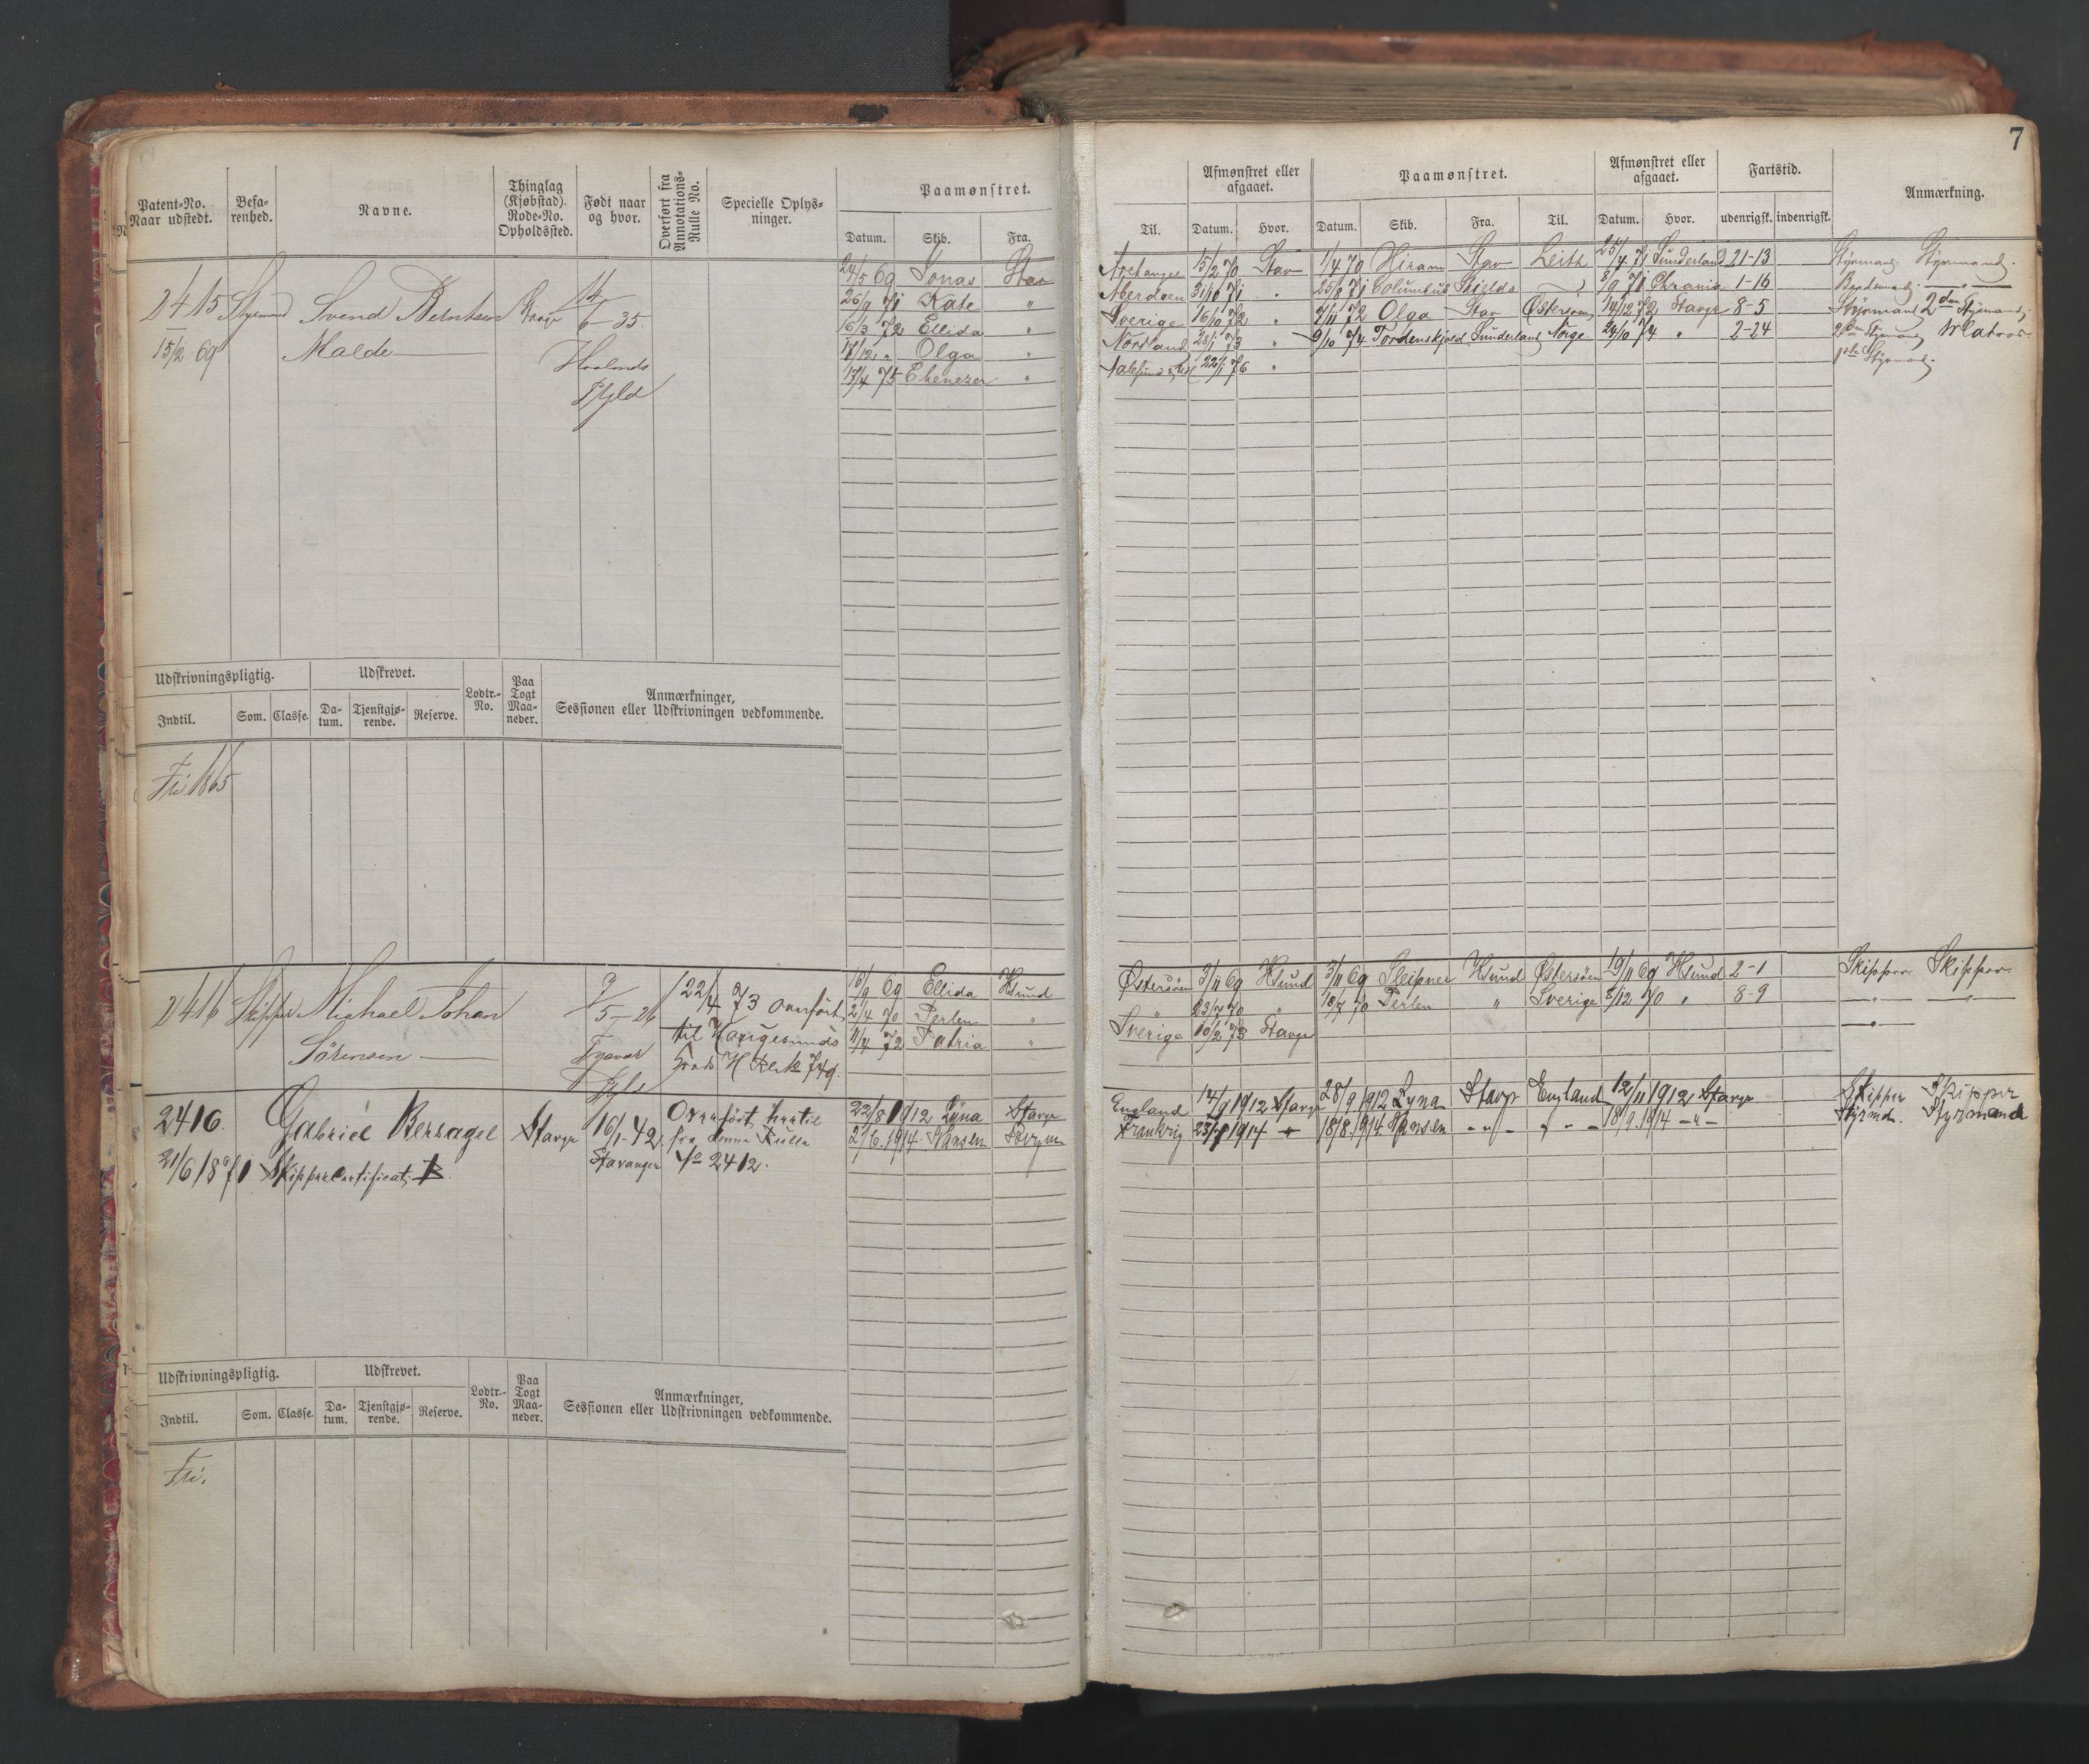 7
Patent-No. Naar udstedt.
Befarenhed.
Navne.
Thinglag (Kjøbstad). Rode-No. Opholdssted.
Født naar og hvor.
Overført fra Annotations-Rulle No.
Specielle Oplysninger.
Paamønstret.
Datum. Skib. Fra. Til.
Afmønstret eller afgaaet.
Datum. Hvor.
Paamønstret.
Datum. Skib. Fra. Til.
Afmønstret eller afgaaet.
Datum. Hvor.
Fartstid.
udenrigsk. indenrigsk.
Anmærkning.
2415 Styrmand Svend Berntsen
Malde
15/2 69
14/6 35
Haalands
Pgld
24/5 69 Jonas Stav Archangel 15/2 70 Stav 1/4 70 Hiram Stav Leith 25/4 71 Sunderland 21-13 Styrmand. Styrmand.
26/9 71 Kate " Aberdeen 31/10 71 " 25/8 71 Columbus Shields 8/9 71 Chrania 1-16
16/3 72 Ellida " Sverige 16/10 72 " 9/11 72 Olga Stav Østersøen 14/12 72 Stavgr 8-5 Styrmand 2den Styrmand
17/12 " Olga " Nordland 23/1 73 " 9/10 74 Tordenskjold Sunderland Norge 24/10 74 " 2-24 2den Styrmand Matros
17/4 75 Ebenezer " 22/1 76 " 1ste Styrmand.
Udskrivningspligtig. Udskrevet. Lodtr.-No. Paa Togt Maaneder. Anmærkninger, Sessionen eller Udskrivningen vedkommende.
Indtil. Som. Classe. Datum. Tjenstgjørende. Reserve.
Fri 1865
2416 Skipper Michael Johan
Sørensen
9/5-26
Tysvær
Pgld
22/4 73 overført
til Haugesunds
16/9 69 Ellida Hsund Østersøen 3/11 69 Hsund 3/11 69 Sleipner Hsund Østersøen 19/11 69 Hsund 2-1 Skipper Skipper
2/4 70 Perlen " 23/7 70 " 18/7 70 Perlen " Sverige 8/12 70 " 8-9
11/4 72 Patria " Sverige 10/2 73 Stavgr
2416. Gabriel Bersagel Stavgr 16/1-42. Stavanger
21/6 1871 Skippercertificat B.
Overført hertil
fra denne Rulle
No 2412.
22/8 1912 Lyna Stavgr England 14/9 1912 Stavgr 28/9 1912 Lyna Stavgr England 12/11 1912 Stavgr Skipper Skipper
2/6.1914. Hansen Bergen Frankrig 23/7 1914 18/8.1914. Hansen - " - 18/9.1914 -"- Styrmd. Styrmand
Udskrivningspligtig. Udskrevet. Lodtr.-No. Paa Togt Maaneder. Anmærkninger, Sessionen eller Udskrivningen vedkommende.
Indtil. Som. Classe. Datum. Tjenstgjørende. Reserve.
Fri.